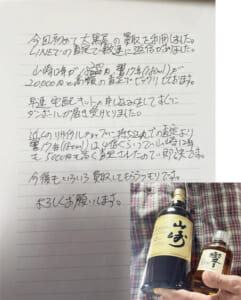 今回初めて大黒屋の買取を利用しました。
LINEでの査定で敏速に返信がありました。
山崎12年が 響17年(180ml)が
20,000円と高額の査定でビックリしております。
早速、宅配キットを申し込みしてすぐに
ダンボールが届き受けとりました。
近くのリサイクルショップに持ち込みでの査定より
響17年(180ml)は4倍くらいで山崎12年
も5000円も高く査定されたので一即決です。
今後もいろいろ買取してもらうつもりです。
よろしくお願いします。
山崎
響